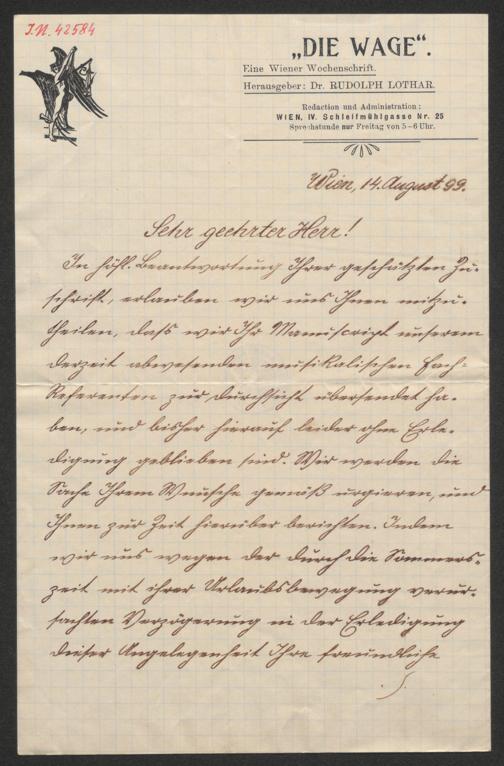 I.N. 42584
„DIE WAGE“.
Eine Wiener Wochenschrift.
Herausgeber: Dr. RUDOLPH LOTHAR.
Redaction und Administration:
WIEN, IV. Schleifmühlgasse Nr. 25
Sprechstunde nur Freitag von 5–6 Uhr.
Wien, 14. August 99.
Sehr geehrter Herr!
In höfl. Beantwortung Ihrer geschätzten Zu-
schrift, erlauben wir uns Ihnen mitzu-
theilen, dass wir Ihr Manuscript unserem
derzeit abwesenden musikalischen Fach-
Referenten zur Durchsicht übersendet ha-
ben, und bisher hierauf leider ohne Erle-
digung geblieben sind. Wir werden die
Sache Ihrem Wunsche gemäß urgieren, und
Ihnen zur Zeit hierüber berichten. Indem
wir uns wegen der durch die Sommers-
zeit mit ihrer Urlaubsbewegung verur-
sachten Verzögerung in der Erledigung
dieser Angelegenheit Ihre freundliche